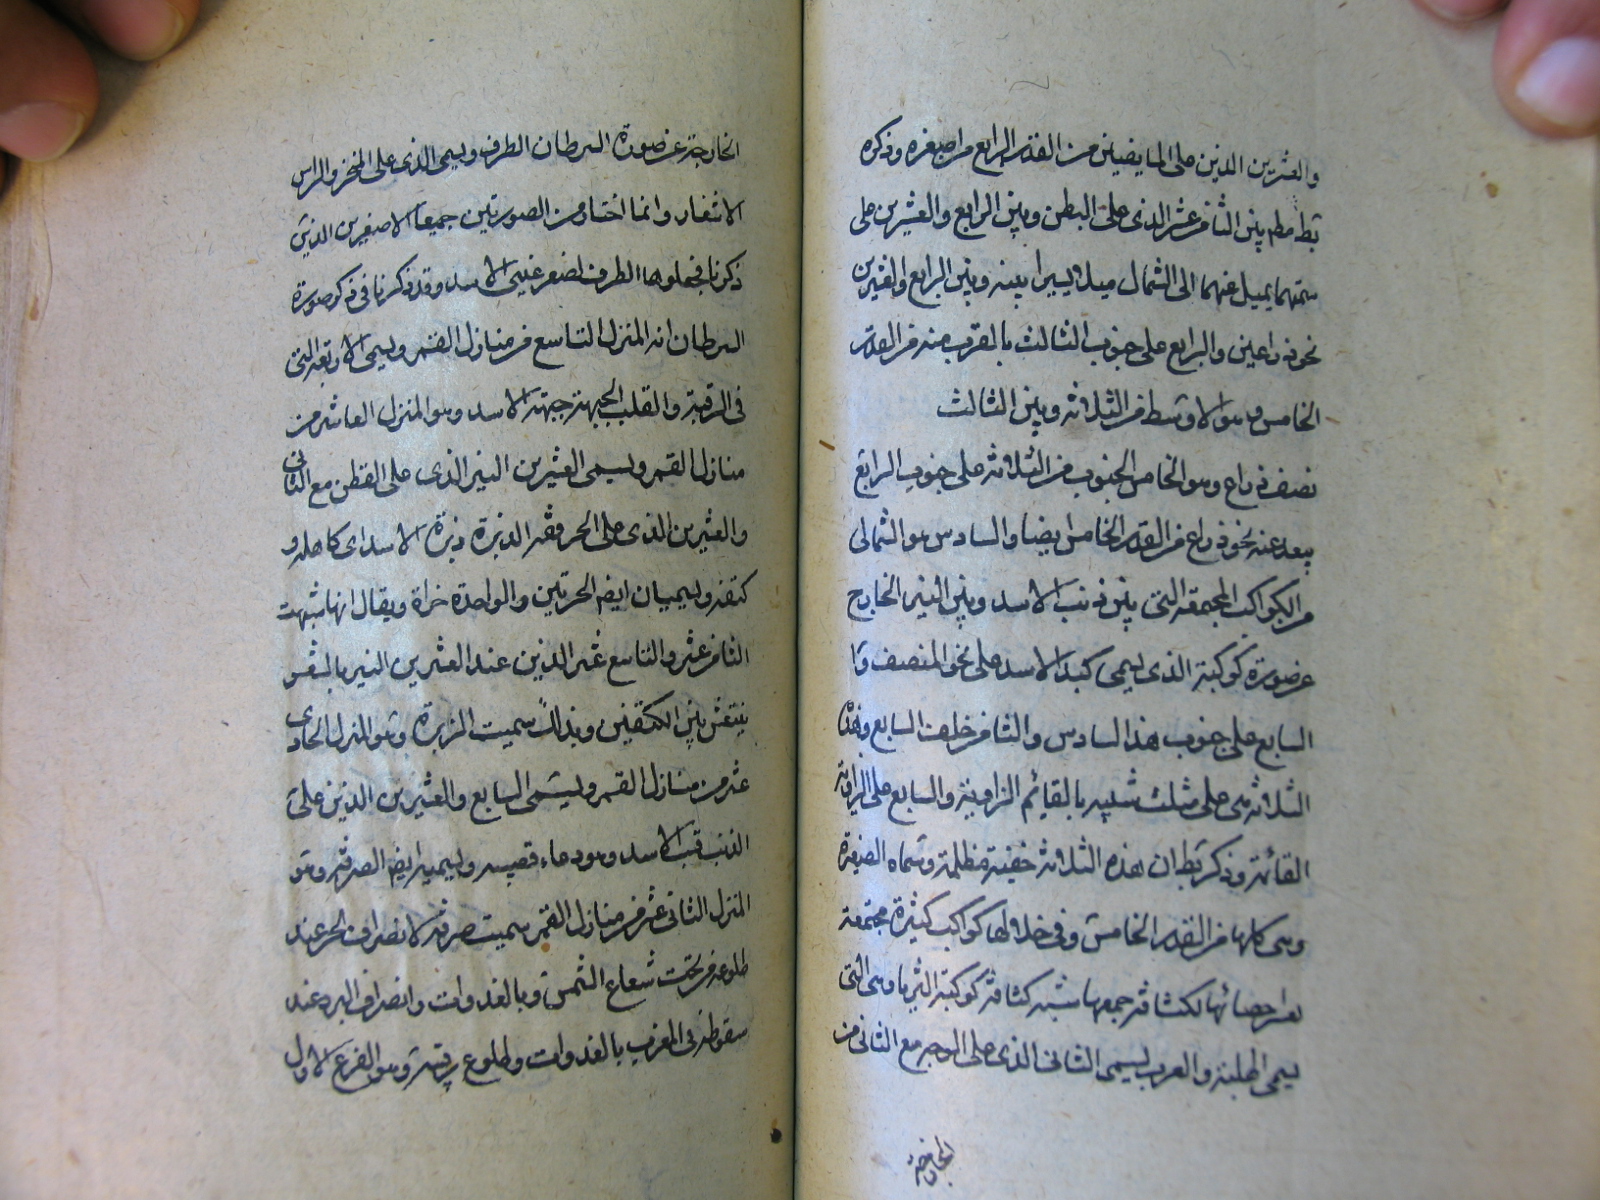 والعشرين الذين على المابضين من القدر الرابع من اصغره وذكره
بطلميوس الثامن عشر الذى على البطن وبين الرابع والعشرين على
سمتهما يميل عنهما الى الشمال ميلا يسيرا بينه وبين الرابع والعشرين
نحو ذراعين والرابع على جنوب الثالث بالقرب منه من القدر
الخامس وهو الاوسط من الثلاثة وبين الثالث
نصف ذراع وهو الخامس الجنوبى من الثلاثة على جنوب الرابع
يبعد عنه نحو ذراع من القدر الخامس ايضا والسادس هو الشمالى
من الكواكب المجتمعة التى بين ذنب الاسد وبين النير الخارج
عن صورة كوكبة الذى يسمى كبد الاسد على نحو المنصف
السابع على جنوب هذا السادس والثامن خلف السابع وهذه
الثلاثة هى على مثلث شبيه بالقايم الزاوية والسابع على الزاوية
القائمة وذكر ان هذه الثلاثة خفية مظلمة وسماه الضفيرة
وهى كلها من القدر الخامس وفى خلالها كواكب كثيرة مجتمعة
احصائها لكثافة جمعها شبه كثافة كوكبة الثريا وهى التى
يسمى الهلبة والعرب يسمى الثانى الذى على الوجه مع الثانى من
الخارجة
الخارجة عن صورة السرطان الطرف ويسمى الذى على المنخر والراس
الاشفار وانما اختار من الصورتين جميعا الاصغيرين الذين
ذكرنا فجعلوها الطرف لصغر عينى الاسد وقد ذكرنا فى ذكر صورة
السرطان انه المنزل التاسع من منازل القمر ويسمى الاربعة التى
فى الرقبة والقلب الجبهة جبهة الاسد وهو المنزل العاشر من
منازل القمر ويسمى العشرين النير الذى على القطن مع الثانى
والعشرين الذى على الحرقفة الزبرة زبرة الاسد اى كاهله و
كتفه ويسميان ايضا الخرتين والواحدة خراة ويقال انها شبهت
الثامن عشر والتاسع عشر الذين عند العشرين النير بالشعر
ينتفش بين الكتفين وبذلك سميت الزبرة وهو المنزل الحادى
عشر من منازل القمر ويسمى السابع والعشرين الذين على
الذنب قنب الاسد وهو وعاء قضيبه ويسميه ايضا الصرفة وهو
المنزل الثانى عشر من منازل القمر سميت صرفة لانصراف الحر عند
طلوعه من تحت شعاع الشمس وبالغدوات وانصراف البرد عند
سقوطه فى المغرب بالغدوات وطلوع وهو الفرغ الاول